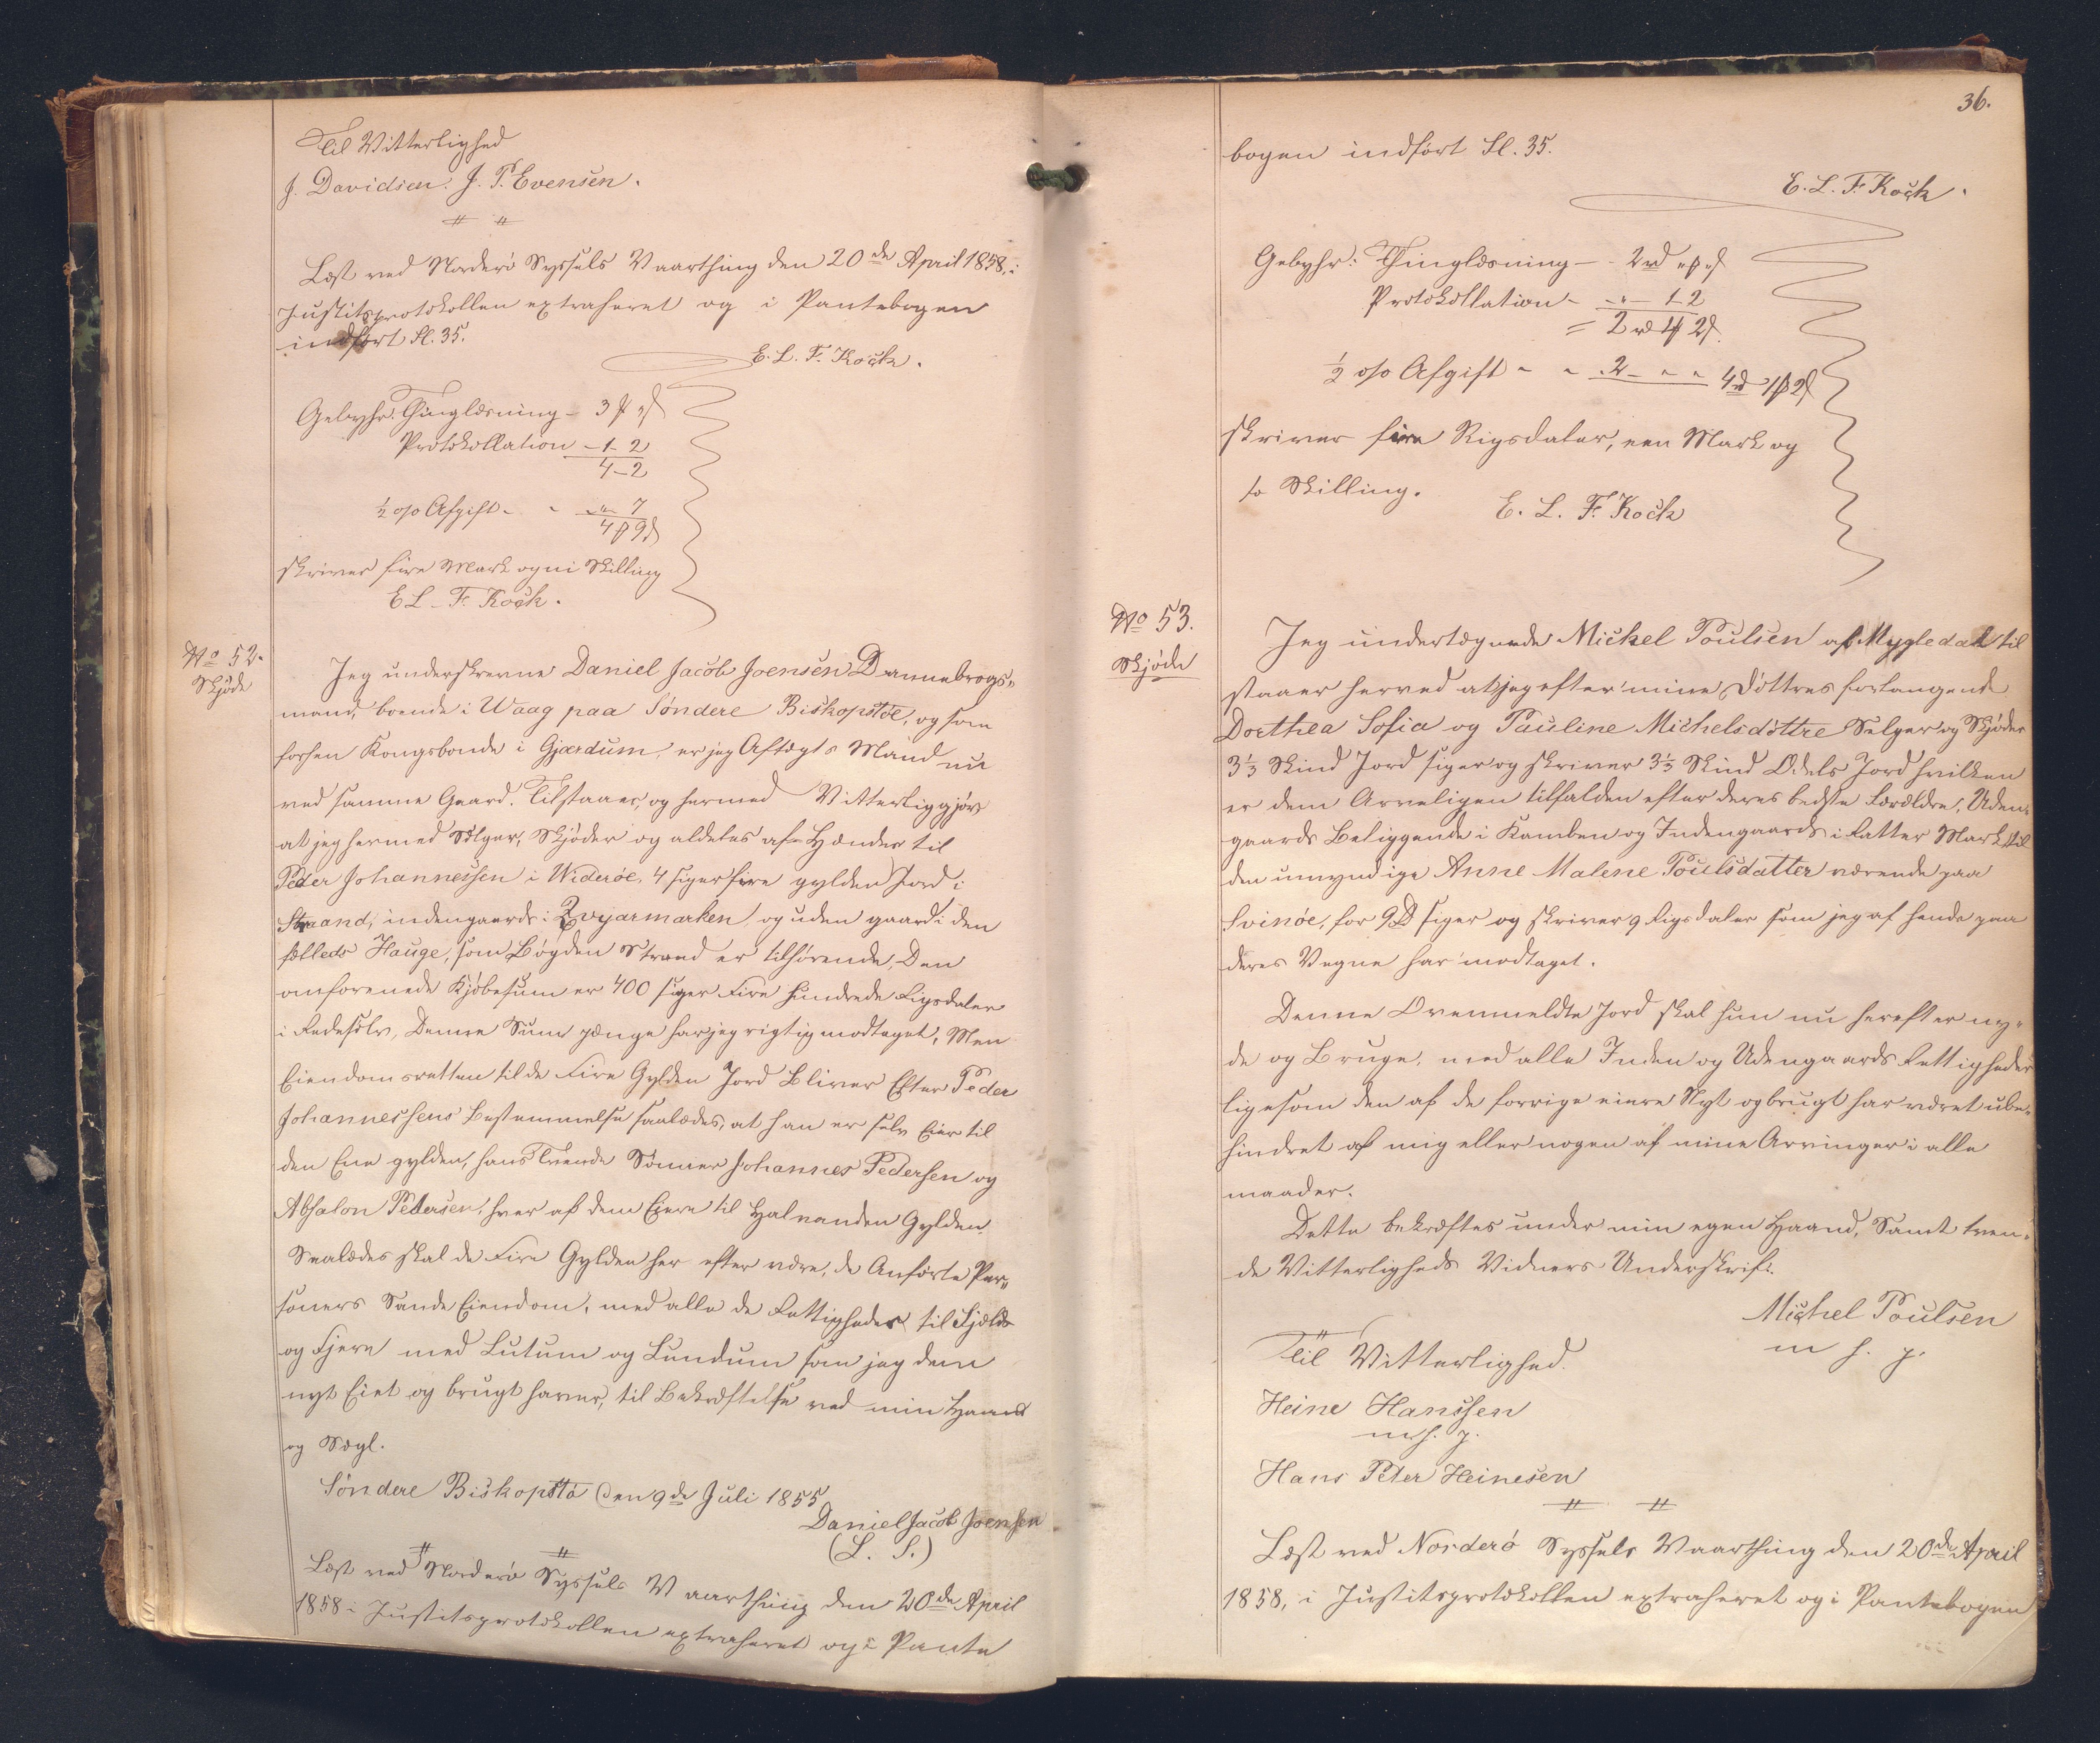 Til Vitterlighed
J. Davidsen. J. P. Evensen.
〃 〃
Læst ved Norderö Syssels Vaarthing den 20de April 1858, i
Justitsprotokollen extraheret og i Pantebogen
indført Fl. 35.
E. L. F. Koch.
Gebyhr: Thinglæsning – 3 ꝟ „ ß
Protokollation – 1 – 2
4 – 2
½ o/o Afgift – „ – „ – 7
4 ꝟ 9 ß
skriver fire Mark og ni Skilling
E L. F. Koch.
No 52.
Skjöde
Jeg underskrevne Daniel Jacob Joensen Dannebrogs„
mand, boende i Waag paa Söndere Biskopstöe, og som
forhen Kongsbonde i Gjærdum, er jeg Aftægts Mand nu
ved samme Gaard. Tilstaaer, og hermed Vitterliggjör
at jeg hermed Sælger, Skjöder og aldeles af Hænder til
Peder Johannessen i Wideröe, 4 siger fire gylden Jord i
Straand, indengaards i Qvyarmarken, og uden gaards i den
fælleds Hauge, som Bögden Strand er tilhörende, Den
omforenede Kjöbesum er 400 siger Fire Hundrede Rigsdaler
i Redesölv, Denne Sum penge har jeg rigtig modtaget, Men
Eiendomsretten til de Fire Gylden Jord Bliver Efter Peder
Johannessens Bestemmelse saaledes, at han er selv Eier til
den Ene gylden, hans Tvende Sönner Johannes Pedersen og
Absalon Pedersen, hver af dem Eiere til Halvanden Gylden,
Saaledes skal de Fire Gylden her efter være, de Anförte Per„
soners Sande Eiendom, med alle de Rettigheder til Fjelds
og Fjere med Lutum og Lundum som jeg dem
nyt Eiet og brugt haver, til Bekræftelse ved min Haand
og Segl.
Söndere Biskopstö den 9de Juli 1855
Daniel Jacob Joensen
(L. S.)
〃 〃
Læst ved Norderö Syssels Vaarthing den 20de April
1858 i Justitsprotokollen extraheret og i Pante
36.
bogen indfört Fl. 35.
E. L. F. Koch.
Gebyhr: Thinglæsning – 2 rd „ ꝟ „ ß
Protokollation – „ – 1 – 2
= 2 rd 1 ꝟ 2 ß.
½ o/o Afgift „ „ 2 „ „ 4 rd 1 ꝟ 2 ß
skriver fire Rigsdaler, een Mark og
to Skilling.
E. L. F. Koch
No 53.
Skjöde
Jeg undertegnede Mickel Poulsen af Mygledahl til
staaer herved at jeg efter mine Döttres forlangende
Dorthea Sofia og Pauline Michelsdöttre Selger og Skjöder
3⅓ Skind Jord siger og skriver 3⅓ Skind Odels Jord hvilken
er dem Arveligen tilfalden efter deres bedste Forældre, Uden„
gaards Beliggende i Kamben og Indengaards i Ratter Mark til
den umyndige Anne Malene Poulsdatter værende paa
Svinöe, for 9 rd siger og skriver 9 Rigsdaler som jeg af hende paa
deres Vegne har modtaget.
Denne Ovenmeldte Jord skal hun nu herefter ny„
de og Bruge, med alle Inden og Udengaards Rettigheder
ligesom den af de forrige eiere Nyt og brugt har været ube„
hindret af mig eller nogen af mine Arvinger i alle
maader.
Dette bekræftes under min egen Haand, Samt tven„
de Vitterligheds Vidners Underskrift.
Michel Poulsen
m. f. p.
Til Vitterlighed.
Heine Hanssen
m. f. p.
Hans Peter Heinesen
〃 〃
Læst ved Norderö Syssels Vaarthing den 20de April
1858, i Justitsprotokollen extraheret og i Pantebogen